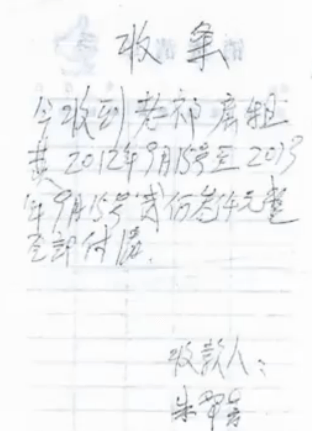 收条
今收到老祁房租
费2012年9月15号至2013
年9月15号贰仟叁仟元整
全部付清.
收款人:
朱